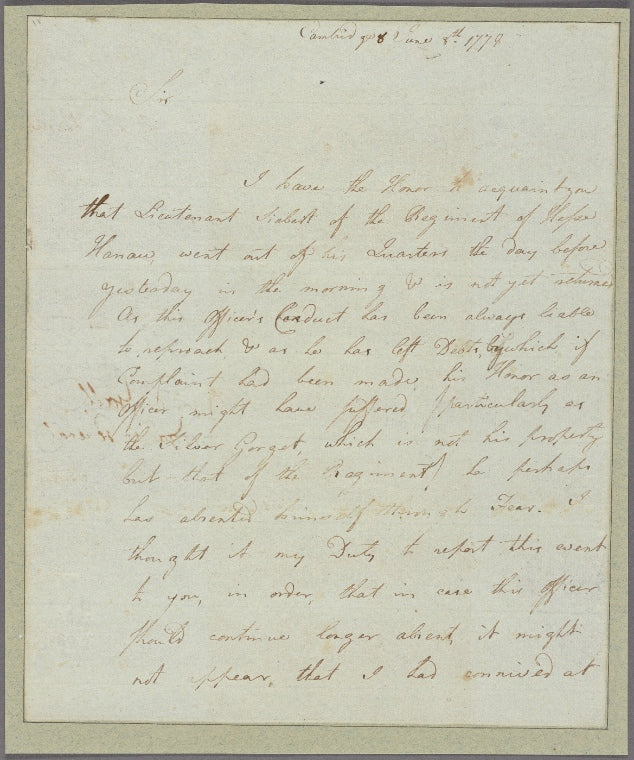 Cambridge June 8th. 1778
Sir
I have the Honor to acquaint you
that Lieutenant Siabert of the Regiment of Hesse
Hanau went out of his Quarters the day before
yesterday in the morning & is not yet returned
As this Officer's Conduct has been always liable
to reproach & as he has left Debts, by which if
Complaint had been made, his Honor as an
Officer might have suffered (particularly as
the Silver Gorget, which is not his property
but that of the Regiment) he perhaps
has absented himself through Fear. I
thought it my Duty to report this event
to you, in order, that in case this Officer
should continue longer absent, it might
not appear, that I had connived at